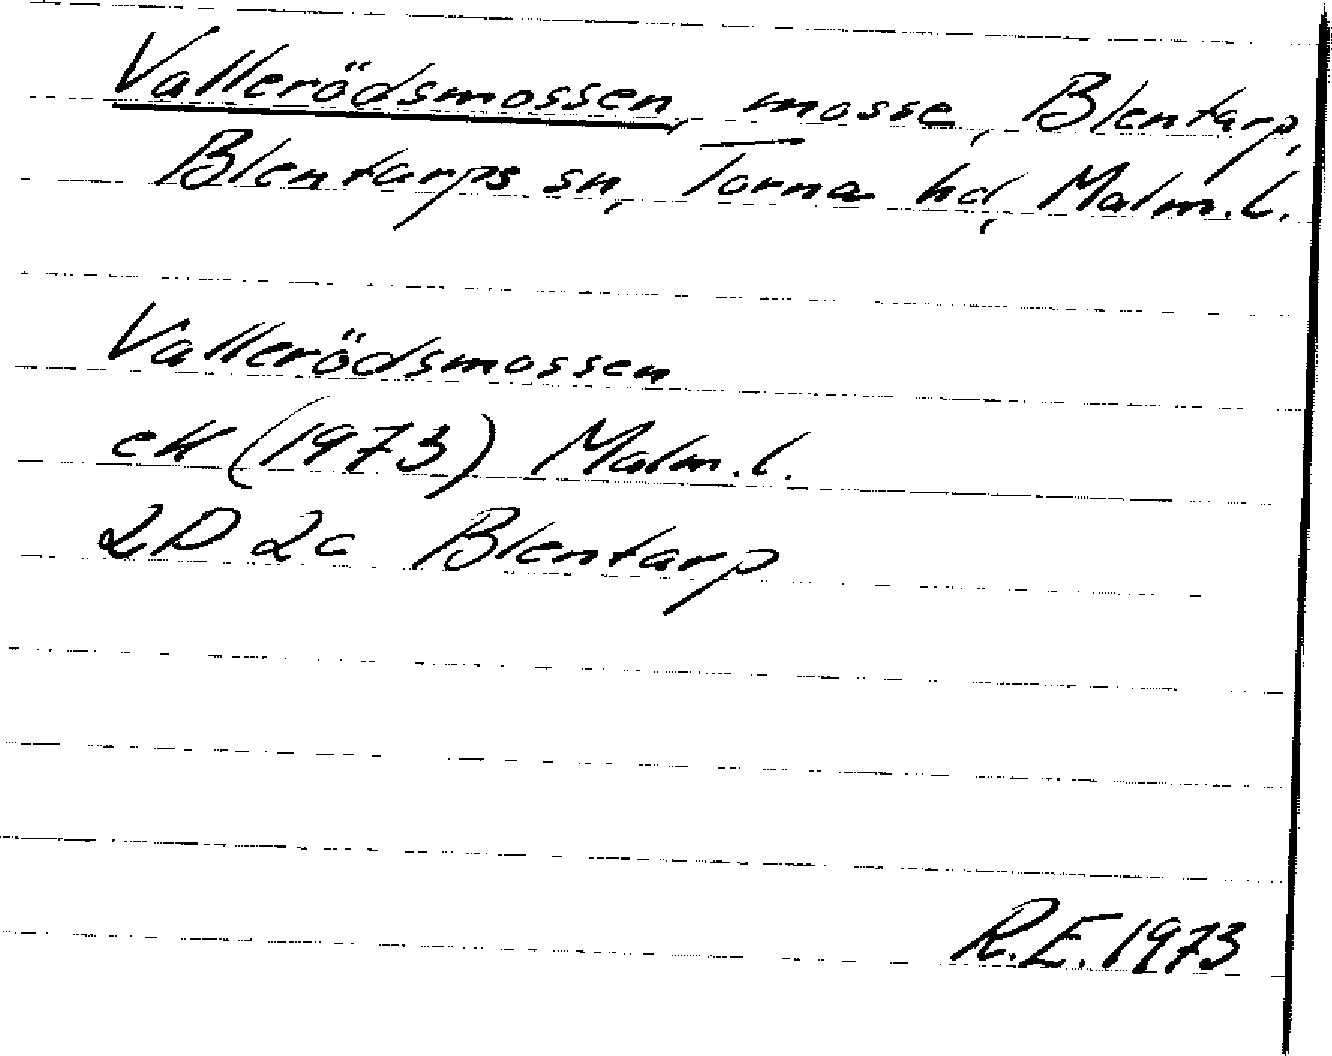 Vallerödsmossen, mosse, Blentarp,
Blentarps sn, Torna hd, Malm. l.
Vallerödsmossen
ek (1973) Malm. l.
2D 2c Blentarp
R.E. 1973